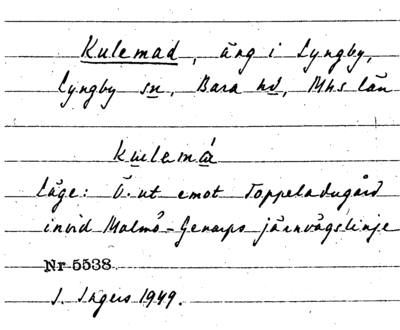 Kulemad, äng i Lyngby,
Lyngby sn, Bara hd, Mhs län
kulemá
läge: Ö. ut emot Toppeladugård
invid Malmö-Genarps järnvägslinje
Nr 5538
I. Ingers 1949.